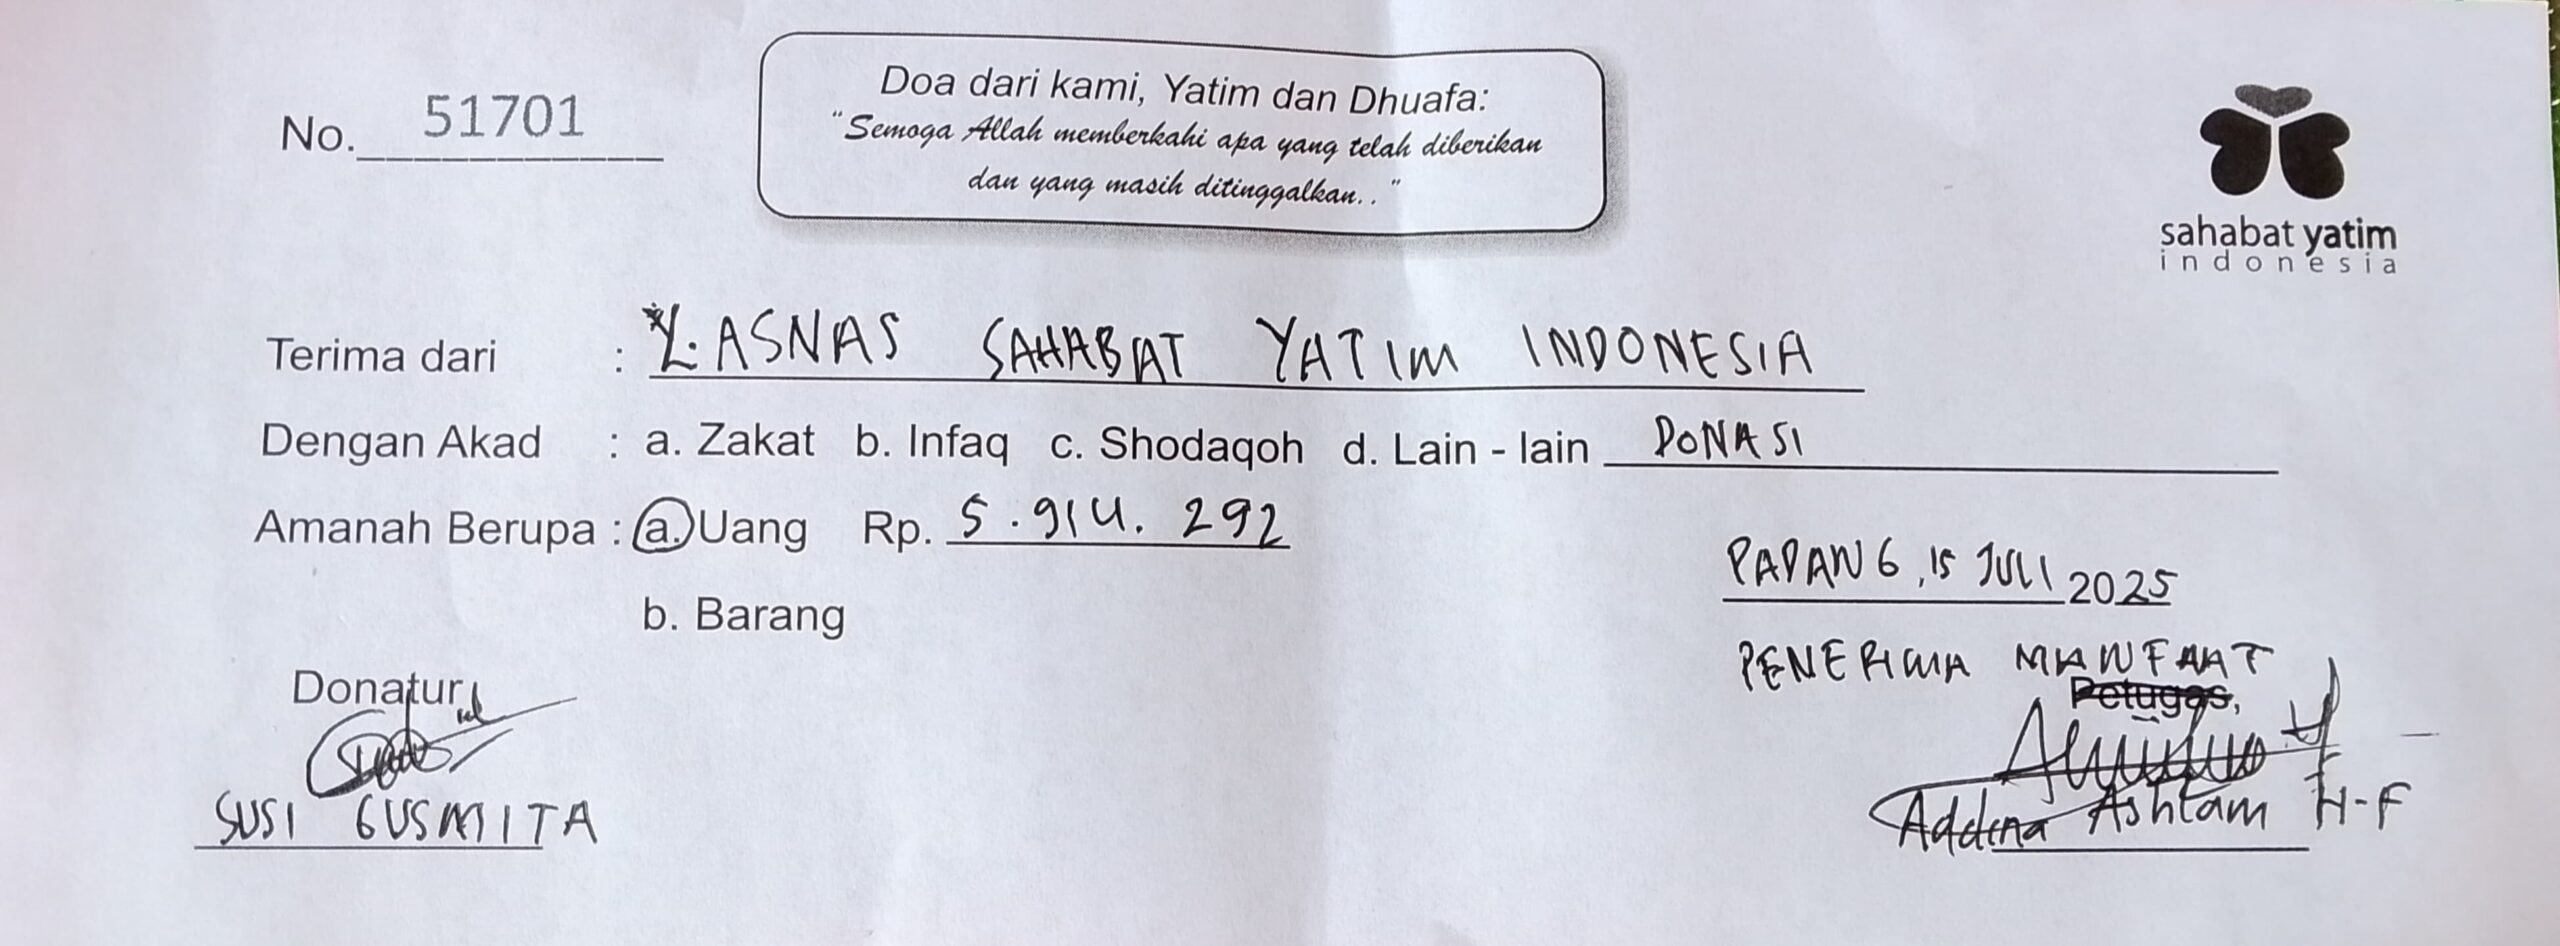 No. 51701
Doa dari kami, Yatim dan Dhuafa:
"Semoga Allah memberkahi apa yang telah diberikan
dan yang masih ditinggalkan.."
sahabat yatim
indonesia
Terima dari : L. ASNAS SAHABAT YATIM INDONESIA
Dengan Akad : a. Zakat b. Infaq c. Shodaqoh d. Lain - lain DONASI
Amanah Berupa : a. Uang Rp. 5.914.292
b. Barang
PADANG, 15 JULI 2025
PENERIMA MANFAAT
Petugas,
Donatur
SUSI GUSMITA
Addina Ashtam H-F